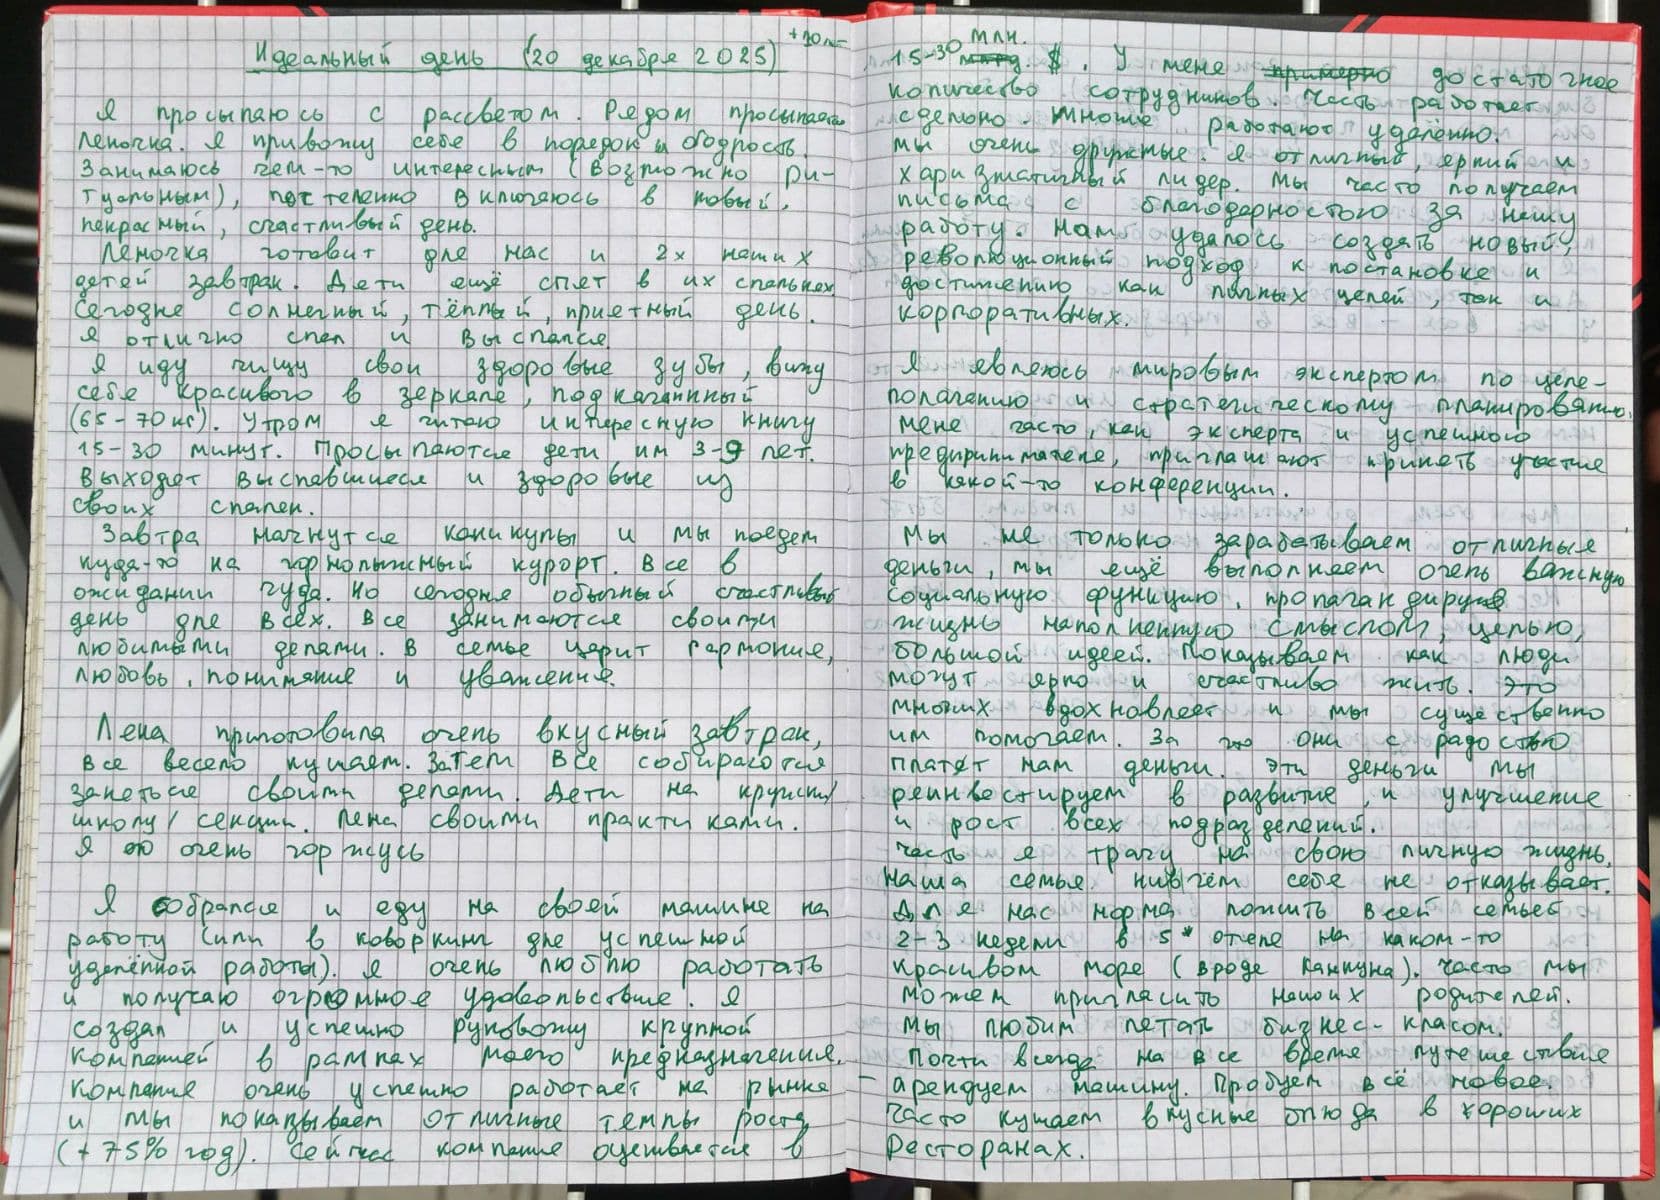 Идеальный день (20 декабря 2025) +10 лет
Я просыпаюсь с рассветом. Рядом просыпается
Леночка. Я привожу себя в порядок и бодрость.
Занимаюсь чем-то интересным (возможно ри-
туальным), постепенно включаюсь в новый,
пекрасный, счастливый день.
Леночка готовит для нас и 2х наших
детей завтрак. Дети ещё спят в их спальнях.
Сегодня солнечный, тёплый, приятный день.
Я отлично спал и выспался.
Я иду чищу свои здоровые зубы, вижу
себя красивого в зеркале, подкаченный
(65-70 кг). Утром я читаю интересную книгу
15-30 минут. Просыпаются дети, им 3-9 лет.
Выходят выспавшиеся и здоровые из
своих спален.
Завтра начнутся каникулы и мы поедем
куда-то на горнолыжный курорт. Все в
ожидании чуда. Но сегодня обычный счастливый
день для всех. Все занимаются своими
любимыми делами. В семье царит гармония,
любовь, понимание и уважение.
Лена приготовила очень вкусный завтрак,
все весело кушаем. Затем все собираются
заняться своими делами. Дети на кружки/
школу/секции. Лена своими практиками.
Я ею очень горжусь
Я собрался и еду на своей машине на
работу (или в коворкинг для успешной
удалённой работы). Я очень люблю работать
и получаю огромное удовольствие. Я
создал и успешно руковожу крупной
компанией в рамках моего предназначения.
Компания очень успешно работает на рынке
и мы показываем отличные темпы роста
(+75% год). Сейчас компания оценивается в
15-30 млн. млрд. $. У меня примерно достаточное
количество сотрудников. Часть работает
сдельно. Многие работают удалённо.
Мы очень дружные. Я отличный, яркий и
харизматичный лидер. Мы часто получаем
письма с благодарностью за нашу
работу. Нам удалось создать новый,
революционный подход к постановке и
достижению как личных целей, так и
корпоративных.
Я являюсь мировым экспертом по целе-
полаганию и стратегическому планированию.
Меня часто, как эксперта и успешного
предпринимателя, приглашают принять участие
в какой-то конференции.
Мы не только зарабатываем отличные
деньги, мы ещё выполняем очень важную
социальную функцию, пропагандируя
жизнь наполненную смыслом, целью,
большой идеей. Показываем как люди
могут ярко и счастливо жить. Это
многих вдохновляет и мы существенно
им помогаем. За это они с радостью
платят нам деньги. Эти деньги мы
реинвестируем в развитие, и улучшение
и рост всех подразделений.
Часть я трачу на свою личную жизнь.
Наша семья нивчём себе не отказывает.
Для нас норма пожить всей семьёй
2-3 недели в 5* отеле на каком-то
красивом море (вроде Канкуна). Часто мы
можем пригласить наших родителей.
Мы любим летать бизнес-класом.
Почти всегда на все время путешествия
- арендуем машину. Пробуем всё новое.
Часто кушаем вкусные блюда в хороших
ресторанах.